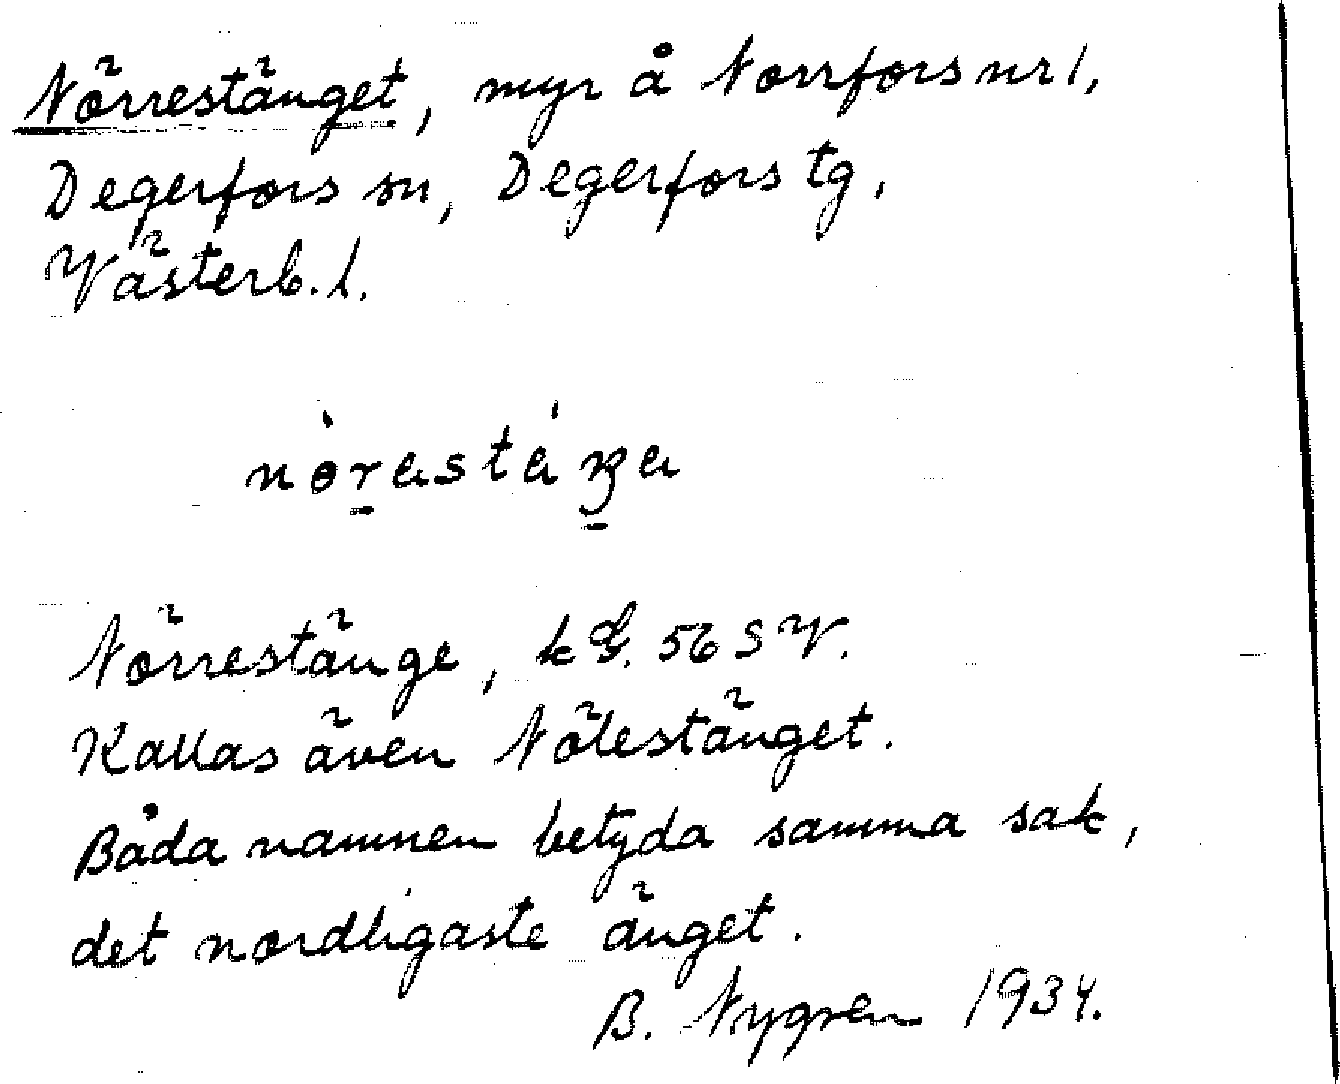 Nörrestänget, myr å Norrfors nr 1,
Degerfors sn, Degerfors tg,
Västerb. l.
Nörrestänge, k G. 56 SV.
Kallas även Nölestänget.
Båda namnen betyda samma sak,
det nordligaste änget.
B. Nygren 1934.